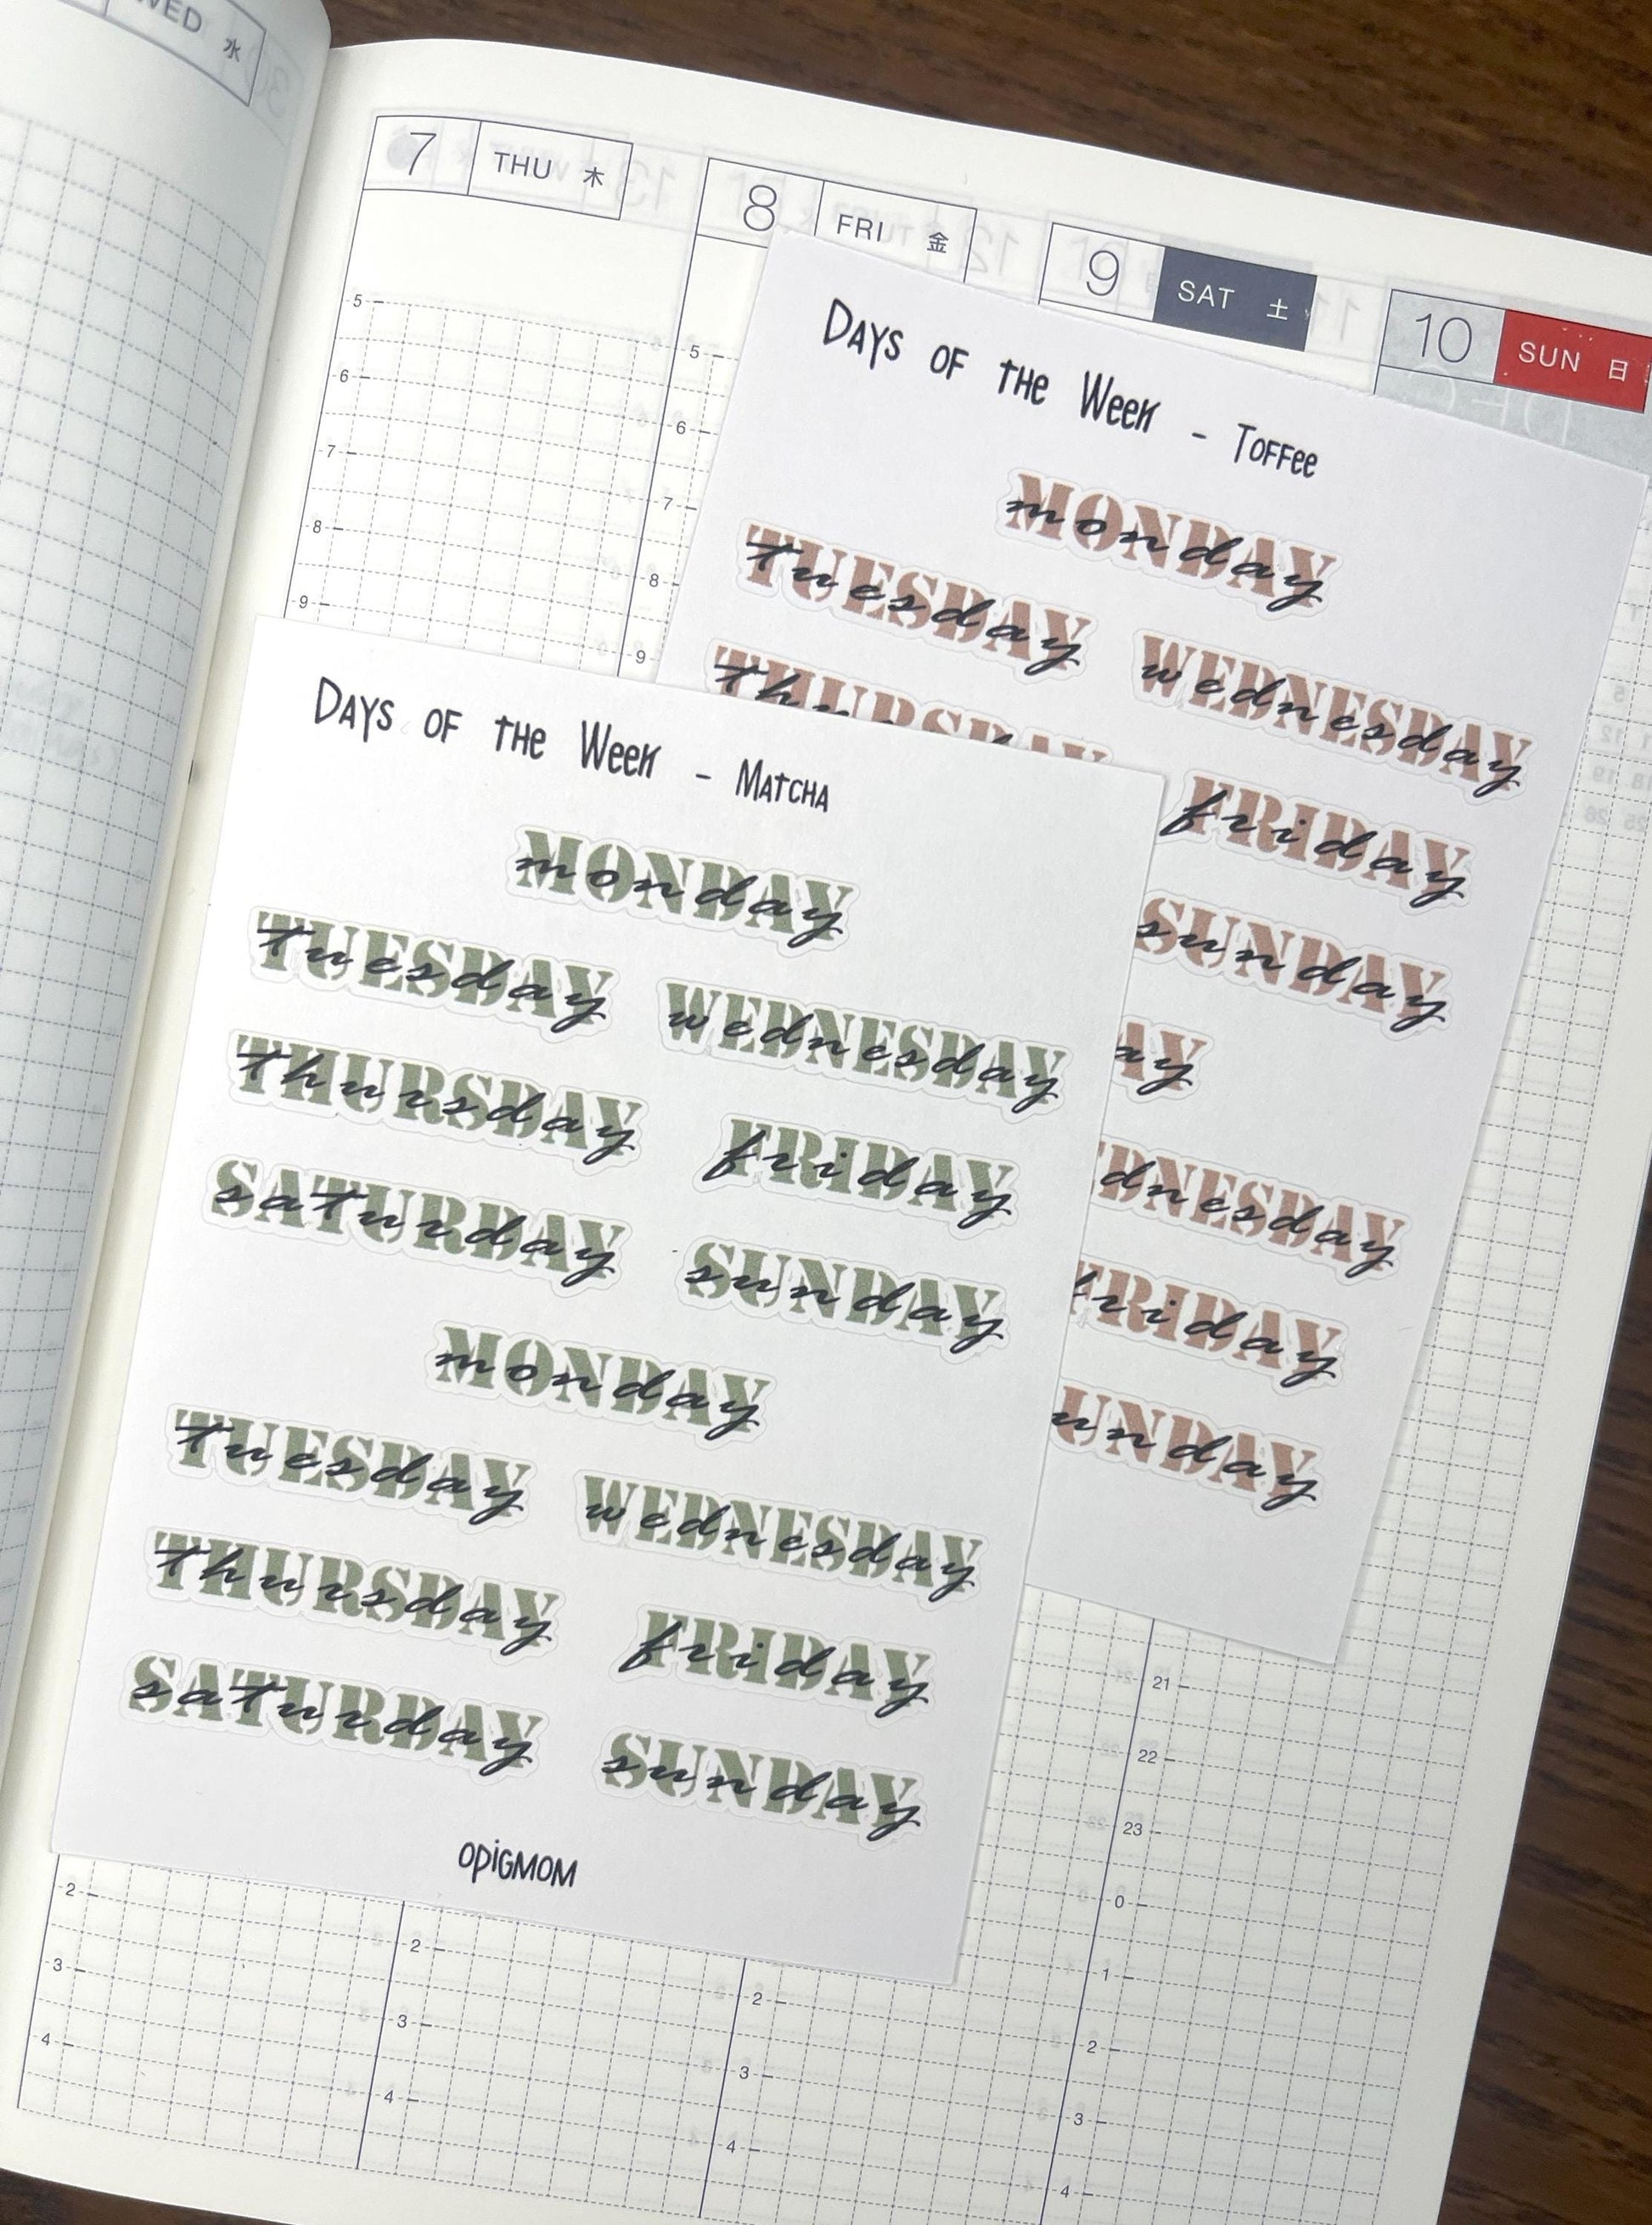 WED 水
7 THU 木
8 FRI 金
9 SAT 土
10 SUN 日
5
6
7
8
9
5
6
7
8
9
Days of the Week - Toffee
MONDAY monday
TUESDAY tuesday WEDNESDAY wednesday
FRIDAY friday
SUNDAY sunday
AY ay
DNESDAY dnesday
FRIDAY friday
UNDAY unday
Days of the Week - Matcha
MONDAY monday
TUESDAY tuesday WEDNESDAY wednesday
THURSDAY thursday FRIDAY friday
SATURDAY saturday SUNDAY sunday
MONDAY monday
TUESDAY tuesday WEDNESDAY wednesday
THURSDAY thursday FRIDAY friday
SATURDAY saturday SUNDAY sunday
opigmom
2
3
4
2
3
4
2
3
4
21
22
23
0
1
2
3
4